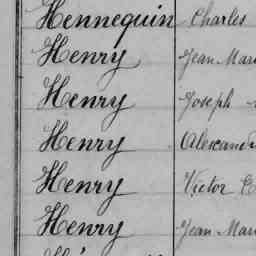 Hennequin Charles
Henry Jean Mari
Henry Joseph
Henry Alexand
Henry Victor
Henry Jean Mari